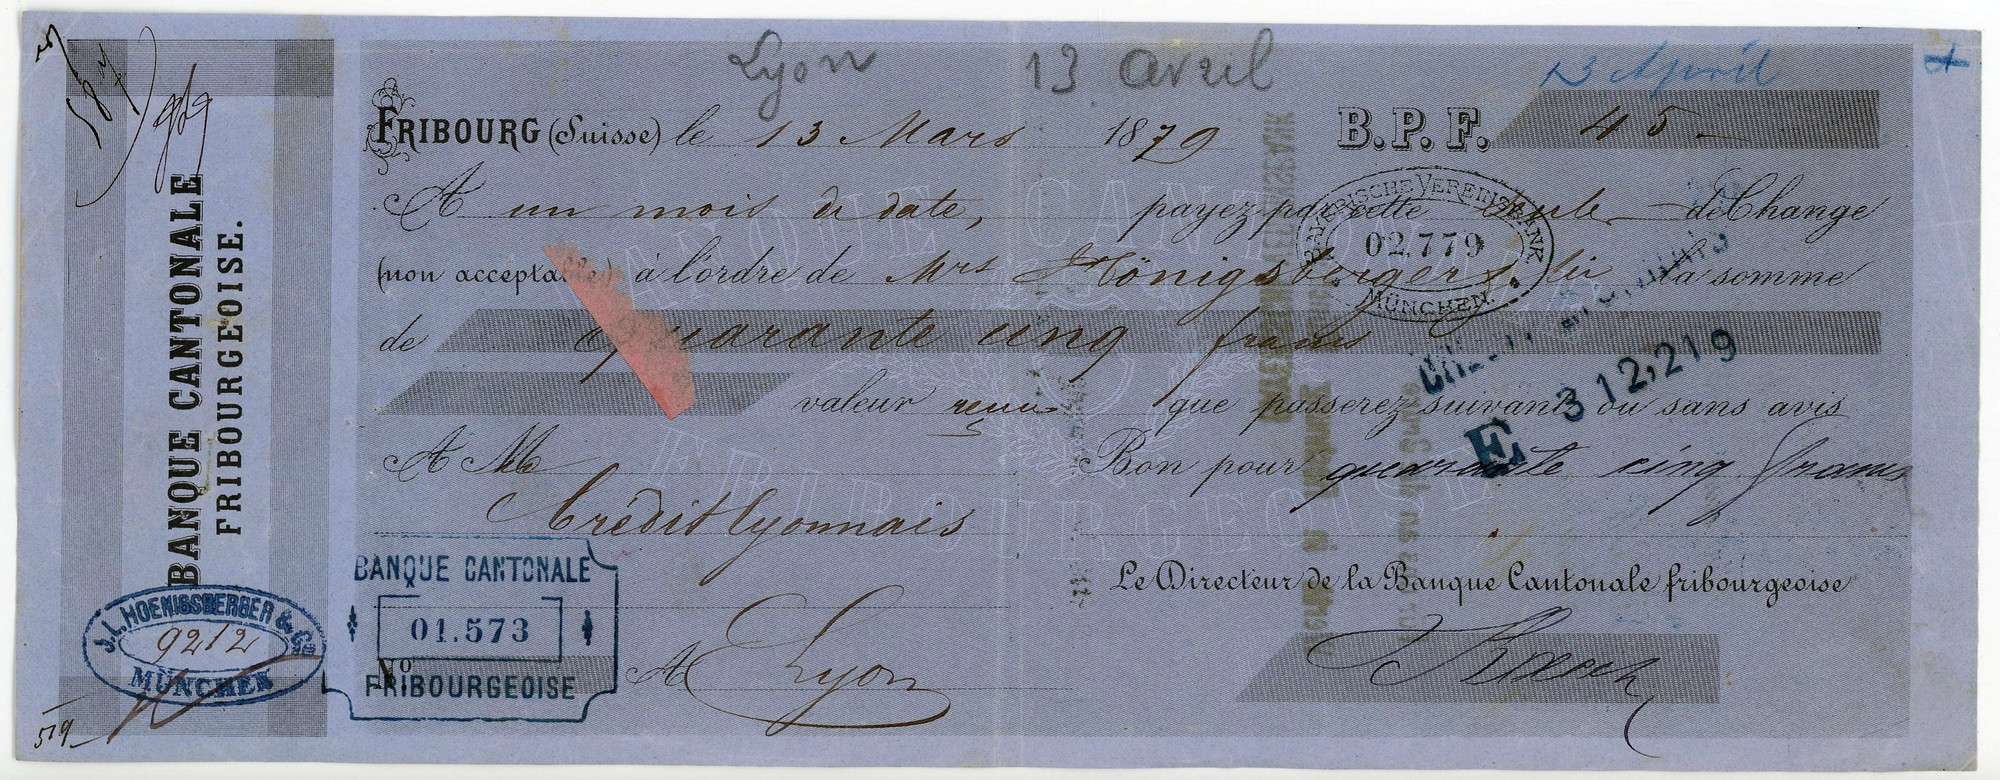 Lyon 13 avril
13 April
FRIBOURG (Suisse) le 13 Mars 1879 B.P.F. 45 –
A un mois de date, payez par cette seule de Change
(non acceptable) à l'ordre de Mrs Hönigsberger la somme
de quarante cinq francs
valeur reçue que passerez suivant ou sans avis
A M Bon pour quarante cinq francs
Crédit lyonnais
Le Directeur de la Banque Cantonale fribourgeoise
A Lyon
BANQUE CANTONALE
FRIBOURGEOISE.
BANQUE CANTONALE
01.573
No
FRIBOURGEOISE
J. L. HOENIGSBERGER & Co
9212
MÜNCHEN
BAYERISCHE VEREINSBANK
02,779
MÜNCHEN.
E 312,219
519
BANQUE CANTONALE
FRIBOURGEOISE